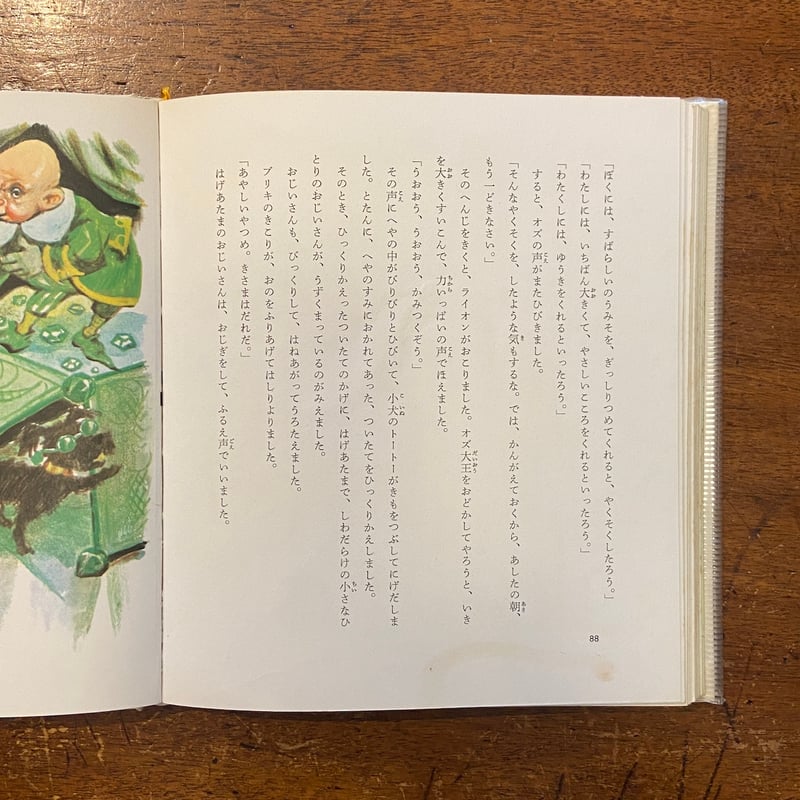 「ぼくには、すばらしいのうみそを、ぎっしりつめてくれると、やくそくしたろう。」
「わたしには、いちばん大きくて、やさしいこころをくれるといったろう。」
「わたくしには、ゆうきをくれるといったろう。」
すると、オズの声がまたひびきました。
「そんなやくそくを、したような気もするな。では、かんがえておくから、あしたの朝、
もう一どきなさい。」
そのへんじをきくと、ライオンがおこりました。オズ大王をおどかしてやろうと、いき
を大きくすいこんで、力いっぱいの声でほえました。
「うおおう、うおおう、かみつくぞう。」
その声にへやの中がびりびりとひびいて、小犬のトートーがきもをつぶしてにげだしま
した。とたんに、へやのすみにおかれてあった、ついたてをひっくりかえしました。
そのとき、ひっくりかえったついたてのかげに、はげあたまで、しわだらけの小さなひ
とりのおじいさんが、うずくまっているのがみえました。
おじいさんも、びっくりして、はねあがってうろたえました。
ブリキのきこりが、おのをふりあげてはしりよりました。
「あやしいやつめ。きさまはだれだ。」
はげあたまのおじいさんは、おじぎをして、ふるえ声でいいました。
88